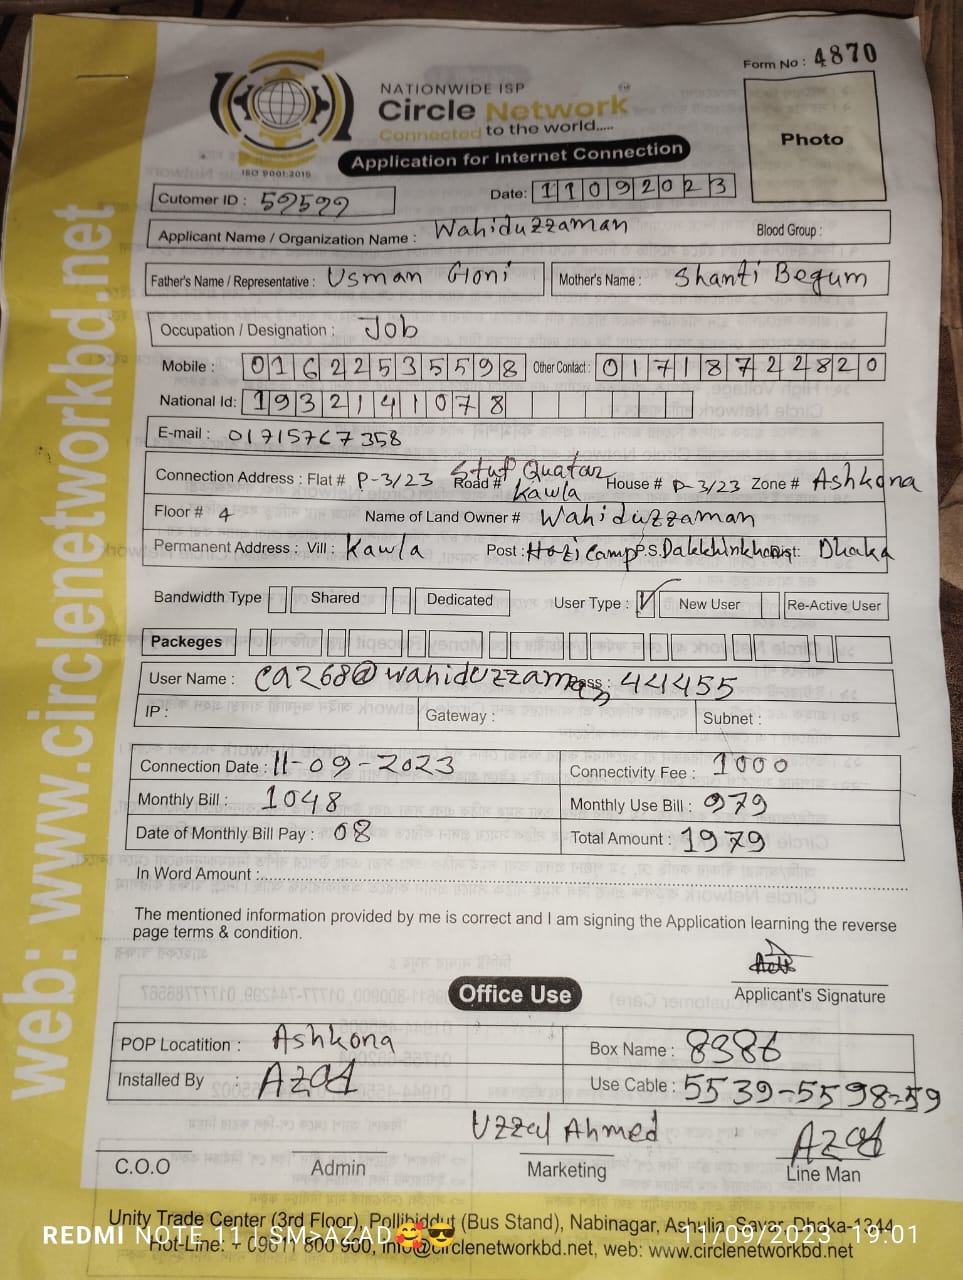 Form No : 4870
NATIONWIDE ISP
Circle Network
Connected to the world.....
ISO 9001:2015
Application for Internet Connection
Photo
Cutomer ID : 59599
Date: 11092023
Applicant Name / Organization Name : Wahiduzzaman Blood Group :
Father's Name / Representative : Usman Goni Mother's Name : Shanti Begum
Occupation / Designation : Job
Mobile : 01622535598 Other Contact : 01718722820
National Id: 1932141078
E-mail : 01715767358
Connection Address : Flat # P-3/23 Road # Stuf Quatar Kawla House # P-3/23 Zone # Ashkona
Floor # 4 Name of Land Owner # Wahiduzzaman
Permanent Address : Vill : Kawla Post : Hazi Camp P.S. Dist: Dhaka
Bandwidth Type Shared Dedicated User Type : New User Re-Active User
Packeges
User Name : ca268@wahiduzzaman Pass : 441455
IP : Gateway : Subnet :
Connection Date : 11-09-2023 Connectivity Fee : 1000
Monthly Bill : 1048 Monthly Use Bill : 979
Date of Monthly Bill Pay : 08 Total Amount : 1979
In Word Amount :
The mentioned information provided by me is correct and I am signing the Application learning the reverse
page terms & condition.
Applicant's Signature
Office Use
POP Locatition : Ashkona Box Name : 8386
Installed By : Azad Use Cable : 5539-5598=59
Uzzal Ahmed Azad
C.O.O Admin Marketing Line Man
Unity Trade Center (3rd Floor), Pollibiddut (Bus Stand), Nabinagar, Ashulia, Savar, Dhaka-1344
Hot-Line: + 09611 800 900, info@circlenetworkbd.net, web: www.circlenetworkbd.net
web: www.circlenetworkbd.net
REDMI NOTE 11 | SM>AZAD🥰😎 11/09/2023 19:01